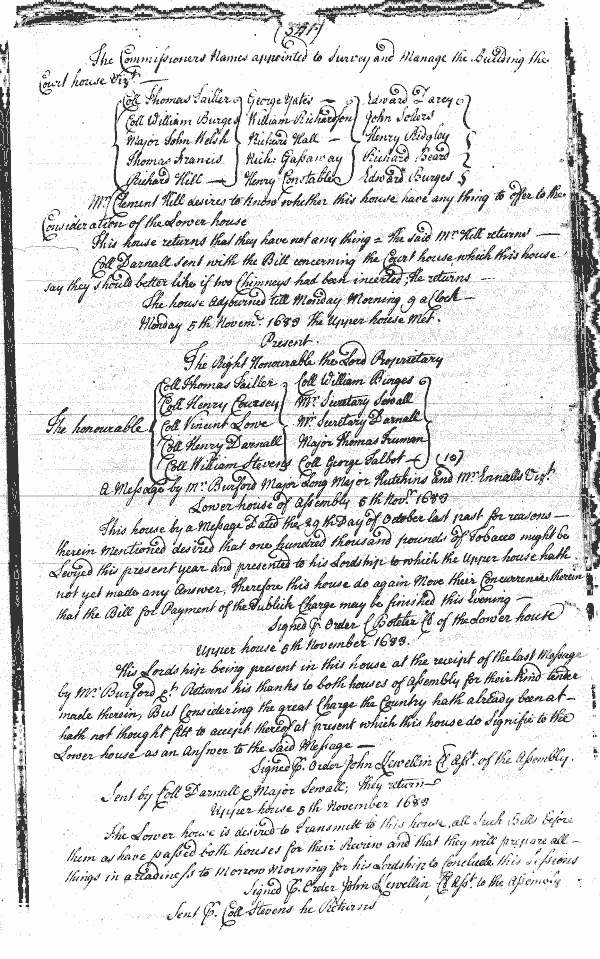 (541)
The Commissioners Names appointed to Survey and Manage the Building the
Court house Vizt.
Coll Thomas Tailler George Yates Edward Darcy
Coll William Burges William Richardson John Sollers
Major John Welsh Richard Hall Henry Ridgley
Thomas Francis Nich: Gassaway Richard Beard
Richard Hill Henry Constable Edward Burges
Mr. Clement Hill desires to know whether this house have any thing to offer to the
Consideration of the Lower house
This house returns that they have not any thing = the said Mr. Hill returns
Coll Darnall sent with the Bill concerning the Court house which this house
say they should better like if two Chimneys had been inserted, he returns
The house adjourned till Monday Morning 9 a Clock
Monday 5th Novemr. 1683 the Upper house Met.
Present.
The Right Honourable the Lord Proprietary
Coll Thomas Tailler Coll William Burges
Coll Henry Coursey Mr. Secretary Sewall
The honourable Coll Vincent Lowe Mr. Secretary Darnall
Coll Henry Darnall Major Thomas Truman
Coll William Stevens Coll George Talbot (10)
A Message by Mr. Burford Major Long Major Hutchins and Mr. Ennalls Vizt.
Lower house of Assembly 5th Novr. 1683
This house by a Message Dated the 29th Day of October last past for reasons
therein Mentioned desired that one hundred thousand pounds of Tobacco might be
Levyed this present year and presented to his Lordship to which the Upper house hath
not yet made any Answer, therefore this house do again Move their Concurrence therein
that the Bill for Payment of the Publick Charge may be finished this Evening
Signed p. Order J Boteler Cl of the Lower house
Upper house 5th November 1683.
His Lordship being present in this house at the receipt of the last Message
by Mr. Burford &c. Returns his thanks to both houses of Assembly for their kind tender
made therein, But Considering the great Charge the Country hath already been at
hath not thought fitt to accept thereof at present which this house do Signifie to the
Lower house as an Answer to the Said Message
Signed p. Order John Llewellin Cl Asst. of the Assembly.
Sent by Coll Darnall & Major Sewall; they return
Upper house 5th November 1683
The Lower house is desired to transmitt to this house all Such Bills before
them as have passed both houses for their Review and that they will prepare all
things in a readiness to Morrow Morning for his Lordship to Conclude this Sessions
Signed p. Order John Llewellin Cl Asst. to the Assembly
Sent p. Coll Stevens he Returns